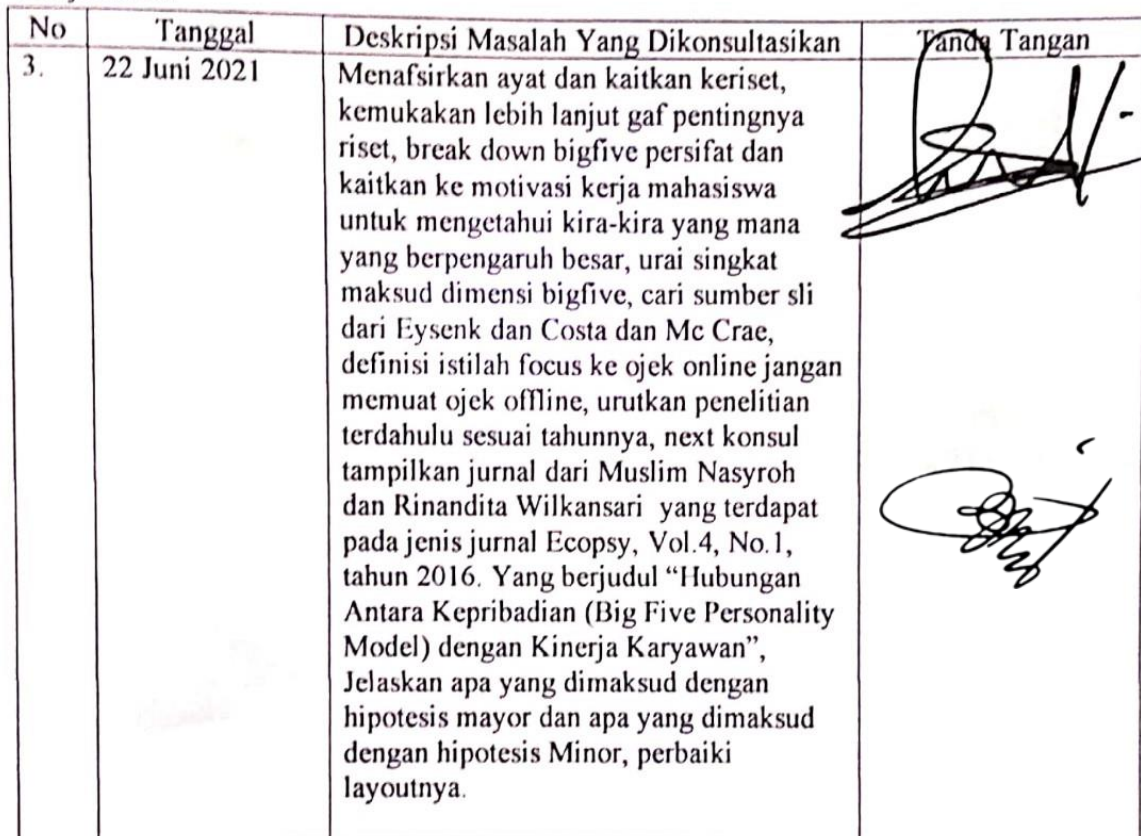 No Tanggal Deskripsi Masalah Yang Dikonsultasikan Tanda Tangan
3. 22 Juni 2021 Menafsirkan ayat dan kaitkan keriset,
kemukakan lebih lanjut gaf pentingnya
riset, break down bigfive persifat dan
kaitkan ke motivasi kerja mahasiswa
untuk mengetahui kira-kira yang mana
yang berpengaruh besar, urai singkat
maksud dimensi bigfive, cari sumber sli
dari Eysenk dan Costa dan Mc Crae,
definisi istilah focus ke ojek online jangan
memuat ojek offline, urutkan penelitian
terdahulu sesuai tahunnya, next konsul
tampilkan jurnal dari Muslim Nasyroh
dan Rinandita Wilkansari yang terdapat
pada jenis jurnal Ecopsy, Vol.4, No.1,
tahun 2016. Yang berjudul “Hubungan
Antara Kepribadian (Big Five Personality
Model) dengan Kinerja Karyawan”,
Jelaskan apa yang dimaksud dengan
hipotesis mayor dan apa yang dimaksud
dengan hipotesis Minor, perbaiki
layoutnya.